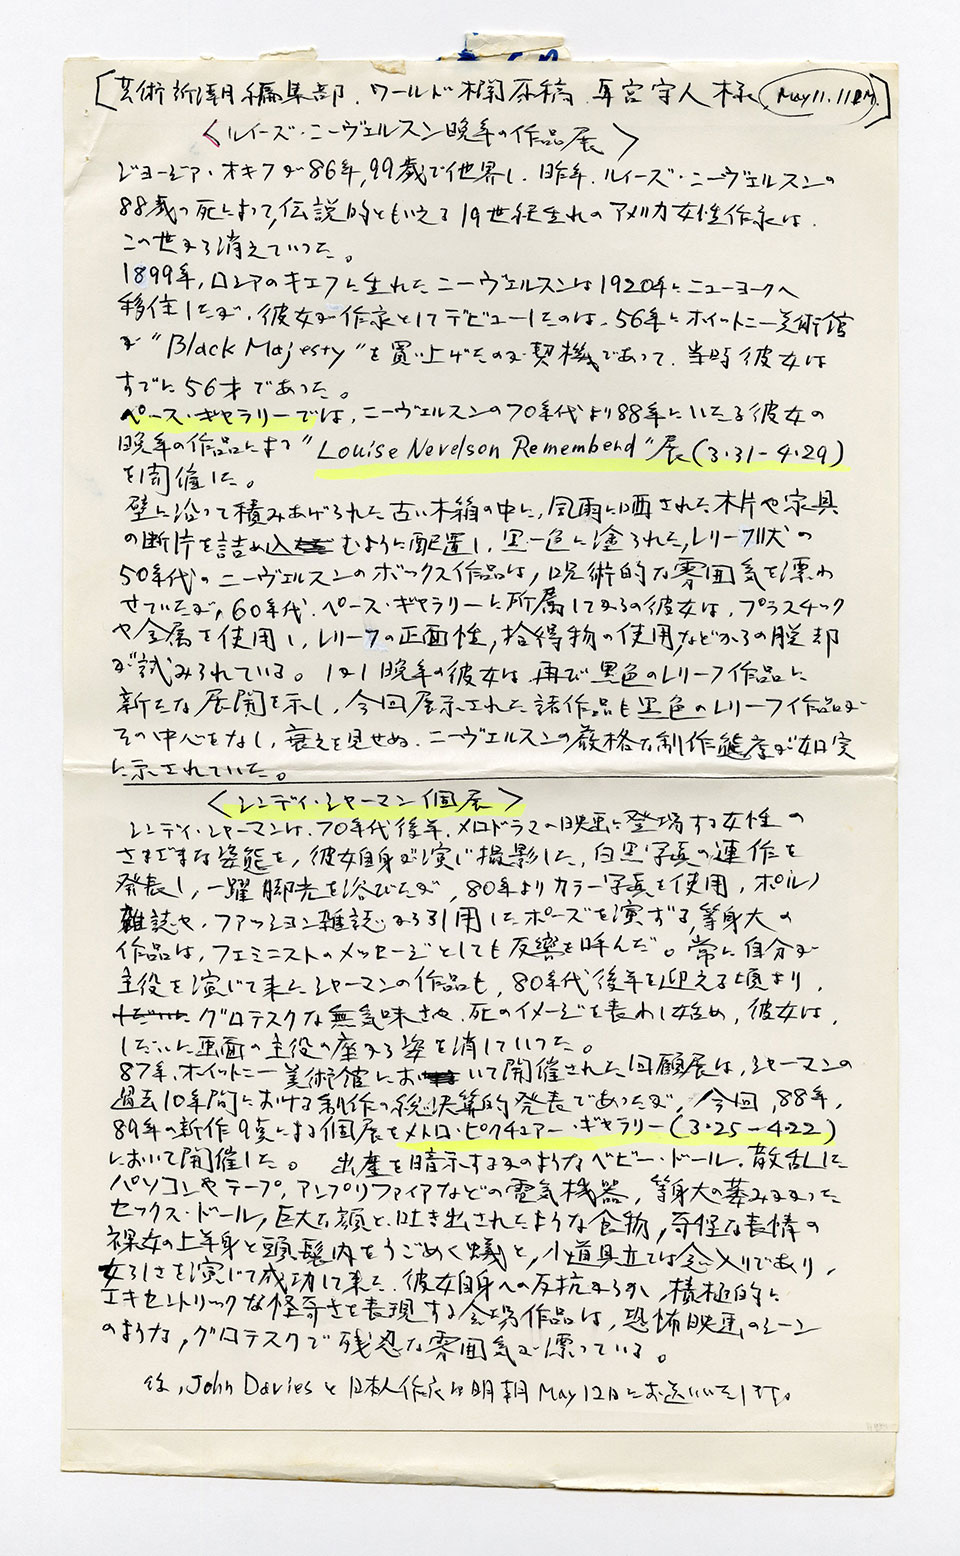 [芸術新潮編集部. ワールド欄原稿 宮守人様 May 11. 11PM]
〈ルイーズ・ニーヴェルスン晩年の作品展〉
ジョージア・オキフが86年, 99歳で他界し, 昨年, ルイーズ・ニーヴェルスンの
88歳の死によって, 伝説的ともいえる19世紀生れのアメリカ女性作家は,
この世から消えていった。
1899年, ロシアのキエフに生れたニーヴェルスンは1920年にニューヨークへ
移住したが, 彼女が作家としてデビューしたのは, 56年にホイットニー美術館
が"Black Majesty"を買い上げたのが契機であって, 当時彼女は
すでに56才であった。
ペース・ギャラリーでは, ニーヴェルスンの70年代より88年にいたる彼女の
晩年の作品によって"Louise Nevelson Remembend"展(3.31-4.29)
を開催した。
壁に沿って積みあげられた古い木箱の中に, 風雨に晒された木片や家具
の断片を詰め込むように配置し, 黒一色に塗られた, レリーフ状の
50年代のニーヴェルスンのボックス作品は, 呪術的な雰囲気を漂わ
せていたが, 60年代, ペース・ギャラリーに所属してからの彼女は, プラスチック
や金属を使用し, レリーフの正面性, 拾得物の使用などからの脱却
が試みられている。しかし晩年の彼女は再び黒色のレリーフ作品に
新たな展開を示し, 今回展示された諸作品も黒色のレリーフ作品が
その中心をなし, 衰えを見せぬ, ニーヴェルスンの厳格な制作態度が如実
に示されていた。
〈シンディ・シャーマン個展〉
シンディ・シャーマンは, 70年代後半, メロドラマの映画に登場する女性の
さまざまな姿態を, 彼女自身が演じ撮影した, 白黒写真の連作を
発表し, 一躍脚光を浴びたが, 80年よりカラー写真を使用, ポルノ
雑誌や, ファッション雑誌から引用したポーズを演ずる, 等身大の
作品は, フェミニストのメッセージとしても反響を呼んだ。常に自分が
主役を演じて来たシャーマンの作品も, 80年代後半を迎える頃より,
グロテスクな無気味さや, 死のイメージを表わし始め, 彼女は,
しだいに画面の主役の座から姿を消していった。
87年, ホイットニー美術館において開催された回顧展は, シャーマンの
過去10年間における制作の総決算的発表であったが, 今回, 88年,
89年の新作9点による個展をメトロ・ピクチュアー・ギャラリー(3.25-4.22)
において開催した。出産を暗示するかのようなベビー・ドール, 散乱した
パソコンやテープ, アンプリファイアなどの電気機器, 等身大の萎みかかった
セックス・ドール, 巨大な顔と, 吐き出されたような食物, 奇怪な表情の
裸女の上半身と頭髪内をうごめく蟻と, 小道具立ては念入りであり,
女らしさを演じて成功して来た, 彼女自身への反抗からか, 積極的に
エキセントリックな怪奇さを表現する会場作品は, 恐怖映画のシーン
のような, グロテスクで残忍な雰囲気が漂っている。
後, John Daviesと日本人作家は明朝May 12日にお送りいたします。